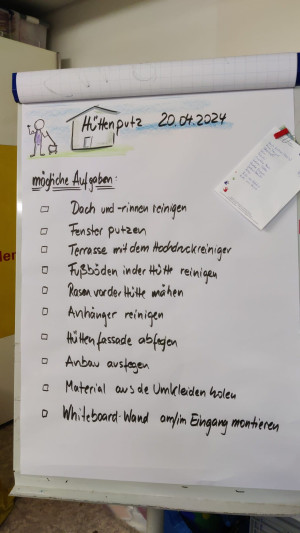 Hüttenputz 20.04.2024
mögliche Aufgaben:
Dach und -rinnen reinigen
Fenster putzen
Terrasse mit dem Hochdruckreiniger
Fußböden in der Hütte reinigen
Rasen vor der Hütte mähen
Anhänger reinigen
Hüttenfassade abfegen
Anbau ausfegen
Material aus de Umkleiden holen
Whiteboard-Wand am/im Eingang montieren